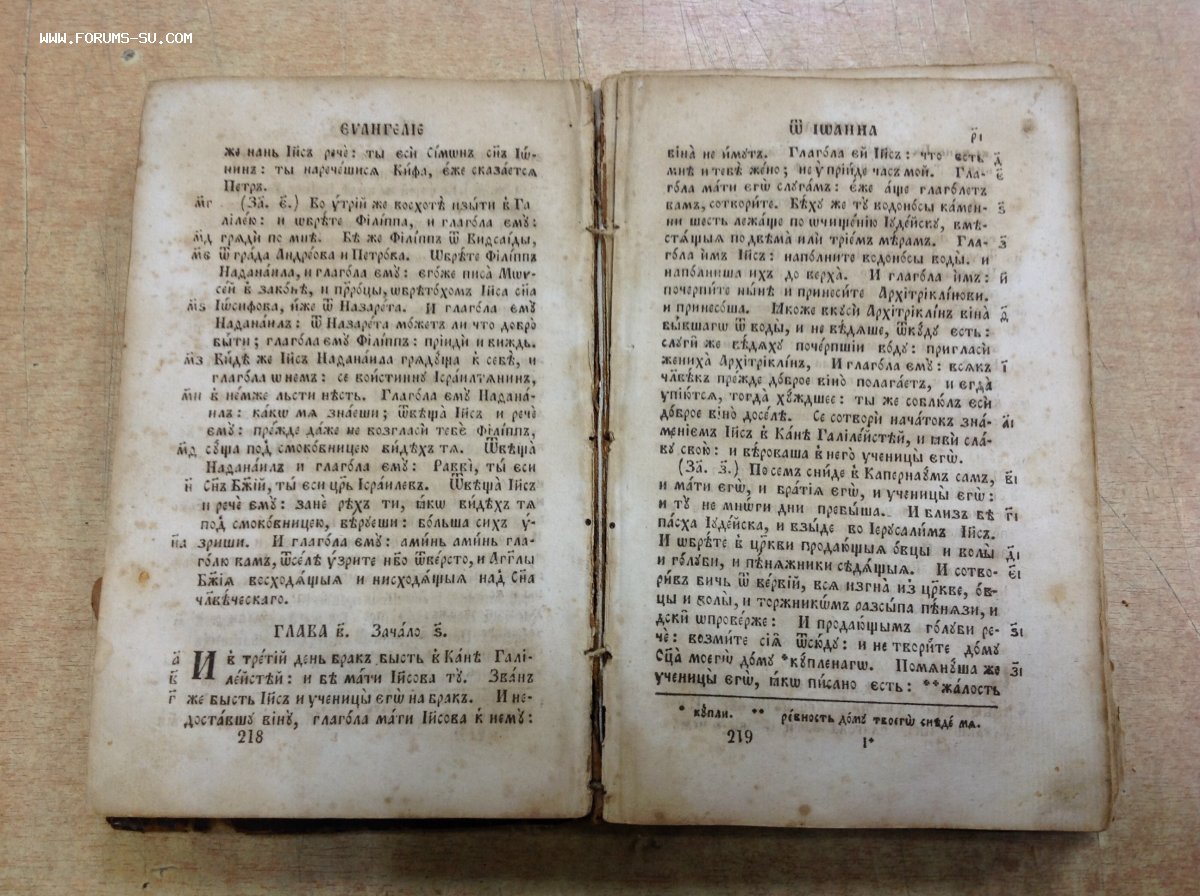 WWW.FORUMS-SU.COM
ЄѴАНГЕЛІЕ
же нань Іи҃съ речѐ: ты̀ єсѝ Сі́монъ сн҃ъ Іѡ́-
нинъ: ты̀ нарече́шися Ки́фа, є́же сказа́ется
Петръ.
м҃г (За҃. є҃.) Во у́трій же восхотѣ̀ изы́ти в҆ Га
лїле́ю: и ѡбрѣ́те Філі́ппа, и глаго́ла єму̀:
м҃д грядѝ по мнѣ̀. Бѣ́ же Філі́ппъ ѿ Виѳсаі́ды,
м҃є ѿ гра́да Андре́ова и Петро́ва. Ѡбрѣ́те Філі́ппъ
Наѳана́ила, и глаго́ла єму̀: єго́же писа̀ Мѡѵ-
се́й в҆ зако́нѣ, и прⷪ҇ро́цы, ѡбрѣто́хомъ Іи҃са сн҃а
м҃ѕ Іѡ́сифова, и́же ѿ Назаре́та. И глаго́ла єму̀
Наѳана́илъ: ѿ Назаре́та мо́жетъ ли что̀ добро̀
бы́ти; глаго́ла єму̀ Філі́ппъ: прїидѝ и ви́ждь.
м҃з Ви́дѣ же Іи҃съ Наѳана́ила гряду́ща к҆ себѣ̀, и
глаго́ла ѡ не́мъ: сѐ вои́стинну Ісра́илтянинъ,
м҃и в҆ не́мже льстѝ нѣ́сть. Глаго́ла єму̀ Наѳана́-
илъ: ка́кѡ мя̀ зна́еши; ѿвѣща̀ Іи҃съ и речѐ
єму̀: пре́жде да́же не возгласѝ тебѐ Філі́ппъ,
м҃ѳ су́ща под смоко́вницею ви́дѣхъ тя̀. Ѿвѣща̀
Наѳана́илъ и глаго́ла єму̀: Равві̀, ты̀ єсѝ
н҃ Сн҃ъ Бж҃їй, ты̀ єсѝ цр҃ь Ісра́илевъ. Ѿвѣща̀ Іи҃съ
и речѐ єму̀: занѐ рѣ́хъ ти, ꙗ́кѡ ви́дѣхъ тя̀
под смоко́вницею, вѣ́руеши: бо́льша си́хъ у́-
н҃а зриши. И глаго́ла єму̀: ами́нь ами́нь гла-
го́лю ва́мъ, ѿсе́лѣ у́зрите нб҃о ѿве́рсто, и Агг҃лы
Бж҃їя восходя́щыя и нисходя́щыя над Сн҃а
чл҃вѣ́ческаго.
ГЛАВА в҃. Зача́ло ѕ҃.
а҃ И в҆ тре́тїй де́нь бра́к бы́сть в҆ Ка́нѣ Галі-
в҃ ле́йстѣй: и бѣ̀ ма́ти Іи҃сова ту̀. Зва́нъ
г҃ же бы́сть Іи҃съ и ученицы̀ єгѡ̀ на бра́к. И не-
доста́вшу віну̀, глаго́ла ма́ти Іи҃сова к҆ нему̀:
218
Ѿ ІѠАННА
р҃і
віна̀ не и́мутъ. Глаго́ла єй Іи҃съ: что̀ єсть д҃
мнѣ̀ и тебѣ̀ же́но; не у̀ прїи́де ча́съ мой. Гла- є҃
го́ла ма́ти єгѡ̀ слуга́мъ: є́же а́ще глаго́летъ
ва́мъ, сотвори́те. Бѣ́ху же ту̀ водоно́сы ка́мен- ѕ҃
ни ше́сть лежа́ще по ѡчище́нїю Іуде́йску, вмѣ-
стя́щыя по двѣма̀ илѝ трїе́м мѣ́рам. Гла- з҃
го́ла и́мъ Іи҃съ: напо́лните водоно́сы воды̀. и
напо́лниша и́хъ до верха̀. И глаго́ла и́мъ: и҃
почерпи́те ны́нѣ и принеси́те Архітрікли́нови.
и принесо́ша. Ꙗ́коже вкусѝ Архітрікли́нъ віна̀ ѳ҃
бы́вшагѡ ѿ воды̀, и не вѣ́дяше, ѿку́ду єсть:
слуги̂ же вѣ́дяху поче́рпшїи во́ду: пригласѝ
жениха̀ Архітрікли́нъ, И глаго́ла єму̀: вся́къ і҃
чл҃вѣ́къ пре́жде до́брое віно̀ полага́етъ, и єгда̀
упїю́тся, тогда̀ ху́ждшее: ты́ же соблю́лъ єсѝ
до́брое віно̀ досе́лѣ. Сѐ сотворѝ нача́токъ зна́- а҃і
менїемъ Іи҃съ в҆ Ка́нѣ Галіле́йстѣй, и ꙗвѝ сла́-
ву свою̀: и вѣ́роваша в҆ него̀ ученицы̀ єгѡ̀.
(За҃. з҃.) По се́мъ сни́де в҆ Каперна́умъ са́мъ, в҃і
и ма́ти єгѡ̀, и бра́тїя єгѡ̀, и ученицы̀ єгѡ̀:
и ту̀ не мно́ги дни̂ превы́ша. И бли́зъ бѣ̀ г҃і
па́сха Іуде́йска, и взы́де во Іерусали́мъ Іи҃съ.
И ѡбрѣ́те в҆ цр҃кви продаю́щыя о́вцы и волы̀ д҃і
и го́луби, и пѣ́няжники сѣдя́щыя. И сотво- є҃і
ри́въ би́чь ѿ ве́рвїй, вся̀ изгна̀ из цр҃кве, о́в-
цы и волы̀, и торжникѡ́мъ разсы́па пѣ́нязи, и
дски̂ ѡпрове́рже: И продаю́щымъ го́луби ре- ѕ҃і
чѐ: возми́те сїя̂ ѿсю́ду: и не твори́те до́му
Ѻц҃а̀ моегѡ̀ до́му *ку́пленагѡ. Помяну́ша же з҃і
ученицы̀ єгѡ̀, ꙗ́кѡ пи́сано єсть: **жа́лость
* ку́пли. ** ре́вность до́му твоегѡ̀ снѣ́де мя̀.
219
І*